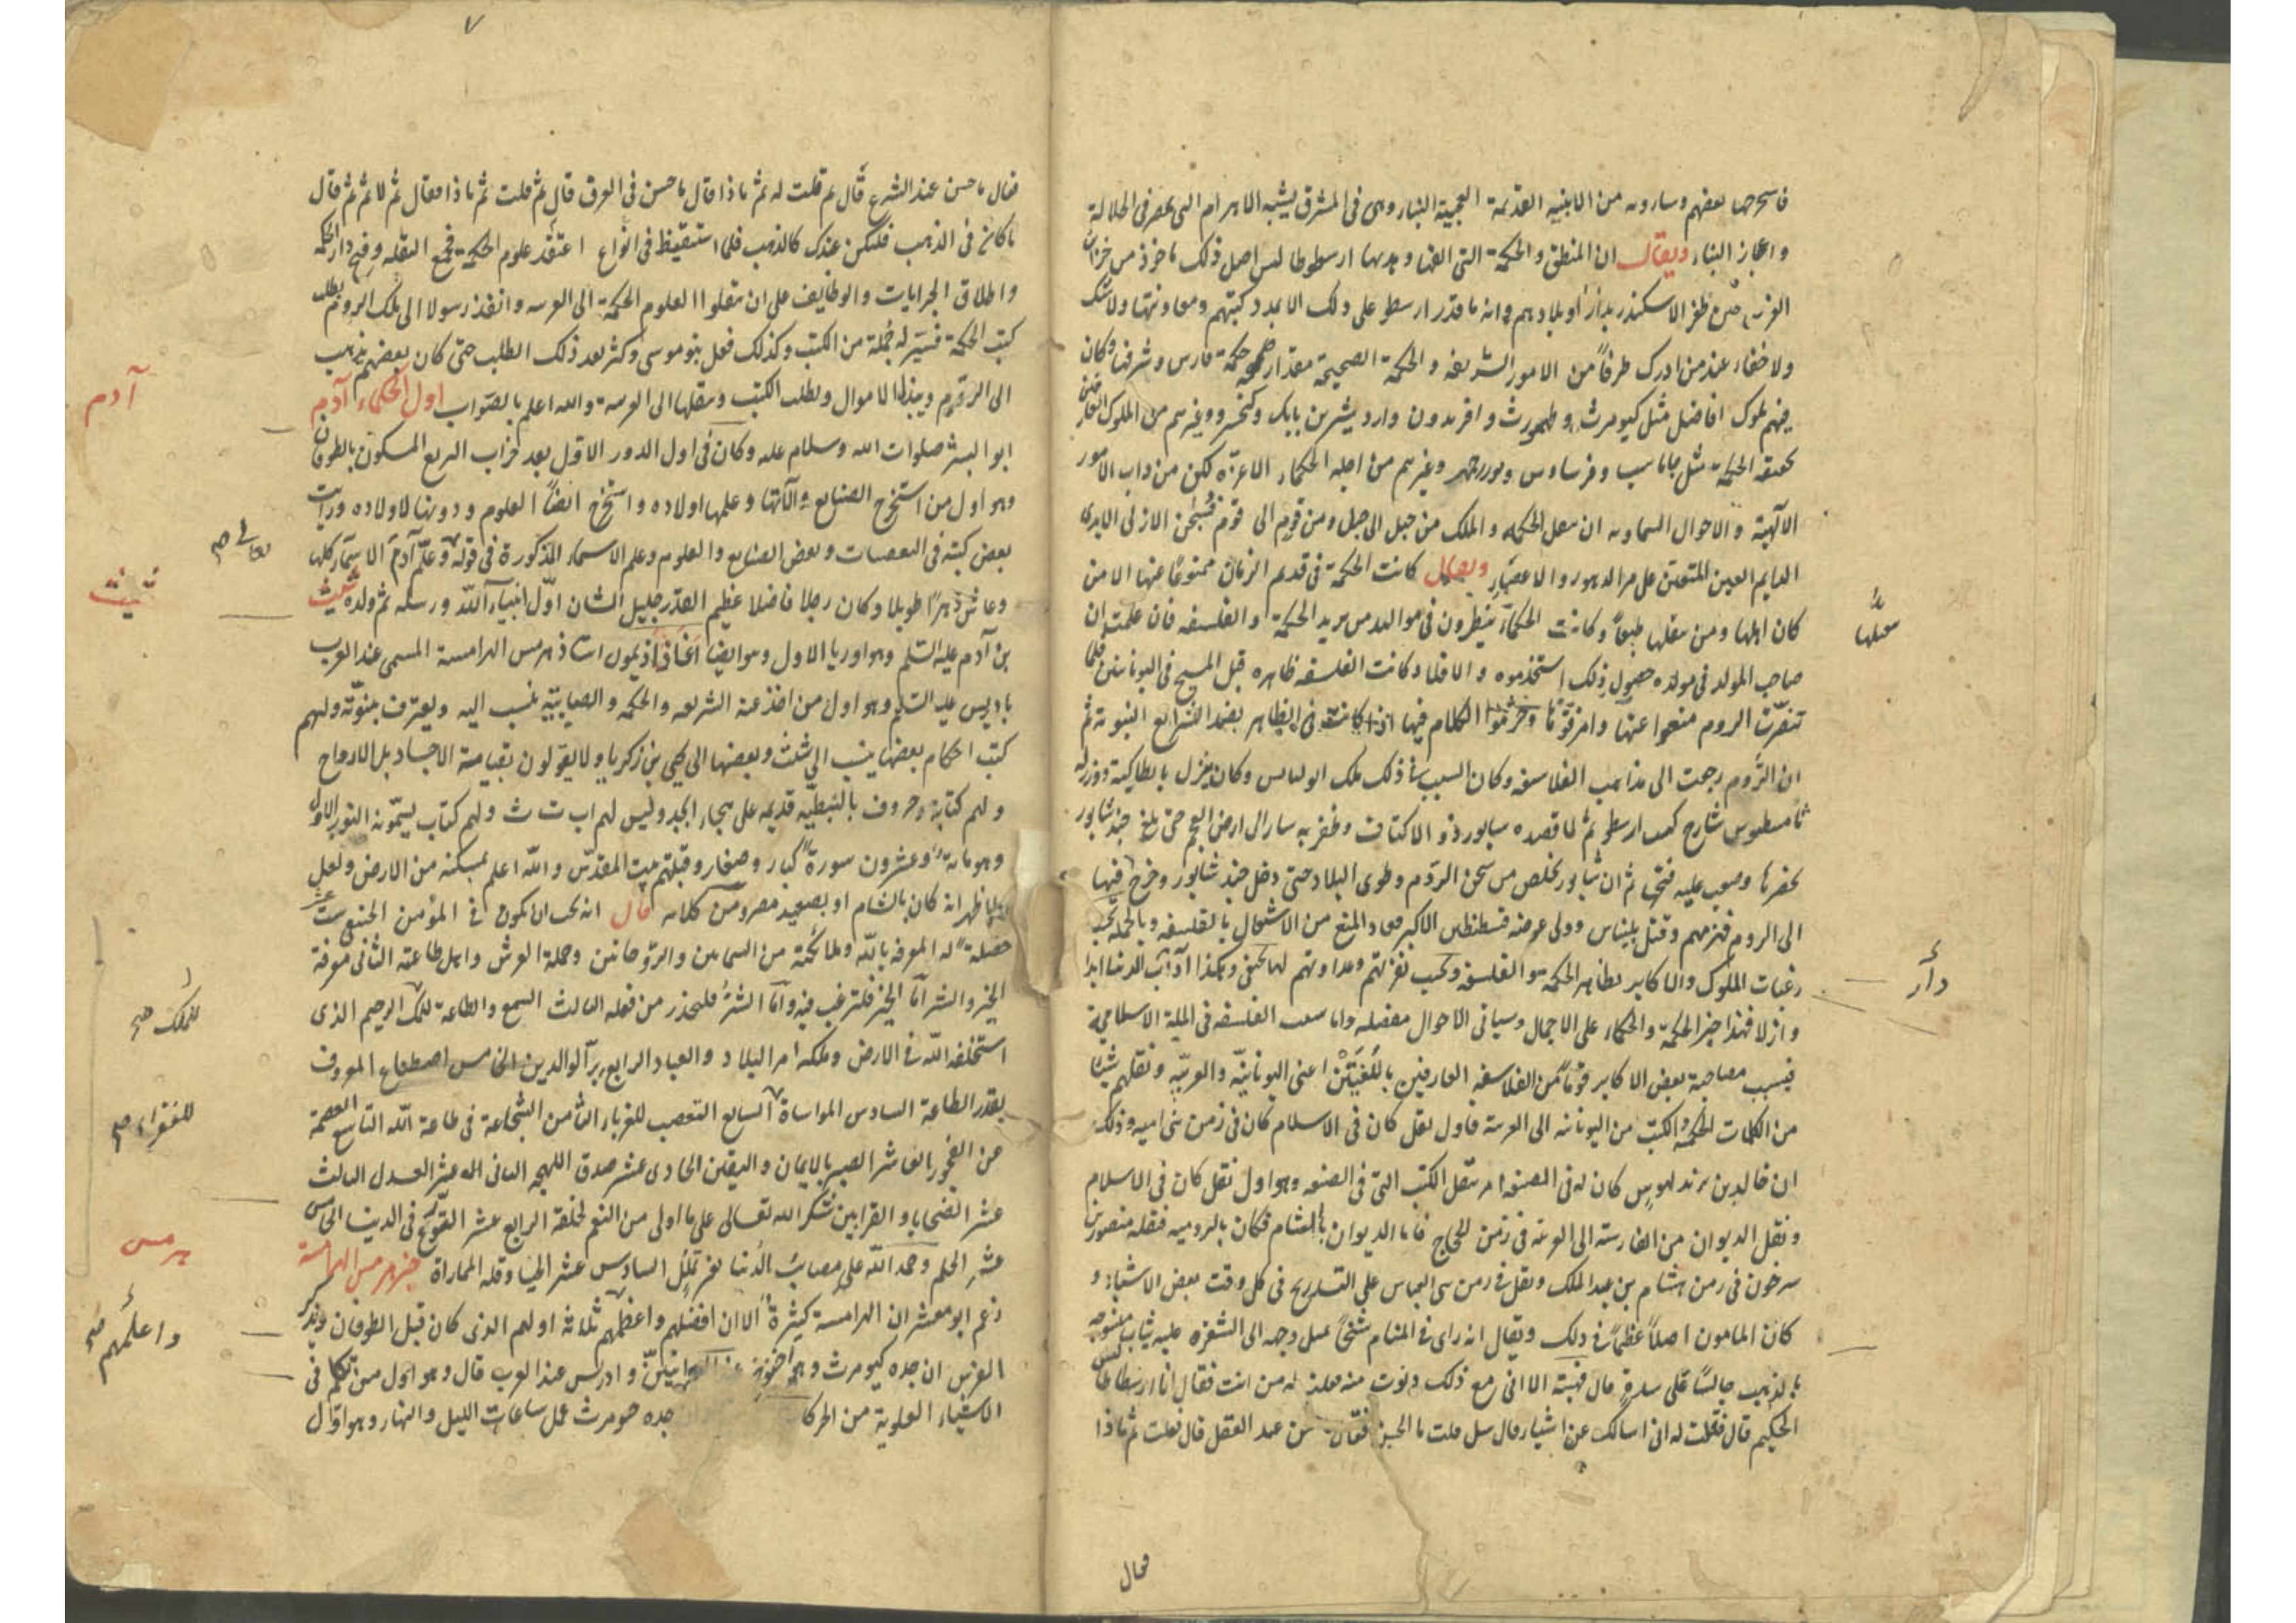 فاستخرجها بعضهم وسارونه من الابنيه القديمة العجيبة البناء وهى فى المشرق يشبه الاهرام التى بمصر فى الجلالة
واعجاز البناء ويقال ان المنطق والحكمة التى الفها وهذبها ارسطوطاليس اصل ذلك ماخوذ من خزائن
الفرس حين ظفر الاسكندر بدارا وبلادهم وانه ما قدر ارسطو على ذلك الا بمدد كتبهم ومعاونتها ولا شك
ولا خفاء عند من ادرك طرفاً من الامور الشريفه والحكمة الصحيحة مقدار حكمة فارس وشرفها وكان
فيهم ملوك افاضل مثل كيومرث وطهمورث وافريدون واردشير بن بابك وكيخسرو وغيرهم من الملوك العارفين
بحقيقة الحكمة مثل جاماسب وفرشاوس وبوزرجمهر وغيرهم من اجله الحكماء الاعزّه لكن من داب الامور
الآلهية والاحوال السماويه ان ينقل الحكمه والملك من جيل الى جيل ومن قوم الى قوم فسبحن الازلى الابدى
الدايم العين المتقن على مر الدهور والاعصار ويقال كانت الحكمة فى قديم الزمان ممنوعاً عنها الا من
كان اهلها ومن يقبلها طبعاً وكانت الحكماء ينظرون فى مواليد من يريد الحكمة والفلسفه فان علمت ان
صاحب المولد فى مولده حصول ذلك استخدموه والا فلا وكانت الفلسفه ظاهره قبل المسيح فى اليونانيين فلما
تنصّرت الروم منعوا عنها وامزقوها وحرّموا الكلام فيها اذ كانت فى الظاهر بضد الشرايع النبوية ثم
ان الروم رجعت الى مذاهب الفلاسفه وكان السبب فى ذلك ملك اليوليانس وكان ينزل بانطاكية ووزيره
ثامسطيوس شارح كتب ارسطو ثم لما قصده سابور ذو الاكتاف وظفر به سار الى ارض العجم حتى بلغ جندشابور
بحضرها وصعب عليه فتحها ثم ان شابور تخلص من سجن الروم وطوى البلاد حتى دخل جندشابور وخرج فيها
الى الروم فهزمهم وقتل بليناس وولى عوضه قسطنطين الاكبر فعاد المنع من الاشتغال بالفلسفه وبالجملة بحسب
رغبات الملوك والاكابر يظاهر الحكمة والفلسفه وبحسب نفرتهم وعداوتهم لها تخفى وهكذا دآئب الدنيا ابدا
وازلا فهذا خبر الحكمة والحكماء على الاجمال وسياتى الاحوال مفصله واما سبب الفلسفه فى الملة الاسلاميّة
فبسبب مصاحبة بعض الاكابر قوماً من الفلاسفه العارفين باللغتين اعنى اليونانيّه والعربيّه ونقلهم شيئا
من الكلمات الحكمة والكتب من اليونانيه الى العربية فاول نقل كان فى الاسلام كان فى زمن بنى اميه وذلك
ان خالد بن يزيد لهوس كان له فى الصنعه امر بنقل الكتب التى فى الصنعه وهو اول نقل كان فى الاسلام
ونقل الديوان من الفارسية الى العربيه فى زمن الحجاج فاما الديوان بالشام فكان بالروميه فنقله منصور بن
سرخون فى زمن هشام بن عبد الملك ونقل فى زمن بنى العباس على التدريج فى كل وقت بعض الاشياء و
كان المامون اصلاً عظيماً فى ذلك ويقال انه راى فى المنام شيخاً يميل وجهه الى الشقره عليه ثياب منسوجه
بالذهب جالساً على سرير قال فهبته الا انى مع ذلك دنوت منه فقلت له من انت فقال انا ارسطاطاليس
الحكيم قال فقلت له انى اسالك عن اشياء قال سل قلت ما الحسن فقال حسن عند العقل قال قلت ثم ماذا
فقال
يقبلها
دآر
٧
فقال ما حسن عند الشرع قال ثم قلت له ثم ماذا قال ما حسن فى العرف قال ثم قلت ثم ماذا فقال ثم لا ثم ثم قال
ما كان فى الذهب فليكن عندك كالذهب فلما استيقظ فى انواع اعتقد علوم الحكمية فجمع النقله وفتح دار الحكمه
واطلاق الجرايات والوظايف على ان ينقلوا العلوم الحكمة الى العربيه وانفذ رسولا الى ملك الروم بطلب
كتب الحكمة فسيّر له جُملة من الكتب وكذلك فعل بنو موسى وكثر بعد ذلك الطلب حتى كان بعضهم يذهب
الى الروم ويبذل الاموال ويطلب الكتب وينقلها الى العربية والله اعلم بالصواب اول الحكماء آدم
ابو البشر صلوات الله وسلامه عليه وكان فى اول الدور الاول بعد خراب الربع المسكون بالطوفان
وهو اول من استخرج الصنايع والآلاتها وعلمها اولاده واستخرج ايضاً العلوم ودونها لاولاده ورايت
بعض كتبه فى العصيات وبعض الصنايع والعلوم وعلم الاسماء المذكورة فى قوله وعلّم آدم الاسماء كلها
وعاش دهراً طويلا وكان رجلا فاضلا عظيم القدر جليل الشان اوّل انبياء الله ورسله ثم ولده شيث
بن آدم عليه السّلم وهو اوريا الاول وهو ايضا اغاذاذيمون استاذ هرمس الهرامسة المسمى عند العرب
بادريس عليه السّلم وهو اول من اخذ عنه الشريعه والحكمه والصابئية ينسب اليه ويعترف بنبوّته ولهم
كتب احكام بعضها ينسب الى شيث وبعضها الى يحيى بن زكريا ولا يقولون بقيامة الاجساد بل الارواح
ولهم كتابة وحروف بالنبطيّه قديمه على هجاء ابجد وليس لهم اب ت ث ولهم كتاب يسمّونه النور الاول
وهو مائة وعشرون سورة كبار وصغار وقبلتهم بيت المقدّس والله اعلم بمسكنه من الارض ولعل
الظاهر انه كان بالشام او بصعيد مصر ومن كلامه قال انه يجب ان يكون فى المؤمن الحنيفى ست عشر
خصلة له المعرفه بالله وملائكته من السمايين والروحانيين وحملة العرش واهل طاعته الثانى معرفة
الخير والشر امّا الخير فلترغب فيه وامّا الشرّ فليحذر من فعله الثالث السمع والطاعة للملك الرحيم الذى
استخلفه الله فى الارض وملكه امر البلاد والعباد الرابع برّ الوالدين الخامس اصطناع المعروف
بقدر الطاعة السادس المواساة السابع التعصب للغرباء الثامن الشجاعة فى طاعة الله التاسع العصمة
من الفجور العاشر الصبر بالايمان واليقين الحادى عشر صدق اللهجه الثانى عشر العدل الثالث
عشر الضحايا والقرابين شكر الله تعالى على ما اولى من النعم لخلقه الرابع عشر التورّع فى الدنيا الخامس
عشر الحلم وحمد الله على مصائب الدّنيا بغير تملل السادس عشر الحيا وقله المماراة خبر هرمس الهرامسة
زعم ابو معشر ان الهرامسة كثيرة الا ان افضلهم واعظمهم ثلاثة اولهم الذى كان قبل الطوفان ويذكر
الفرس ان جده كيومرث وهو اخنوخ عند العبرانيّن وادريس عند العرب قال وهو اول من تكلم فى
الاشياء العلوية من الحركات جده جيومرث عمل ساعات الليل والنهار وهو اوّل
آدم
تعالى صح
شيث
للملك صح
للفقراء صح
هرمس
واعلمهم صح